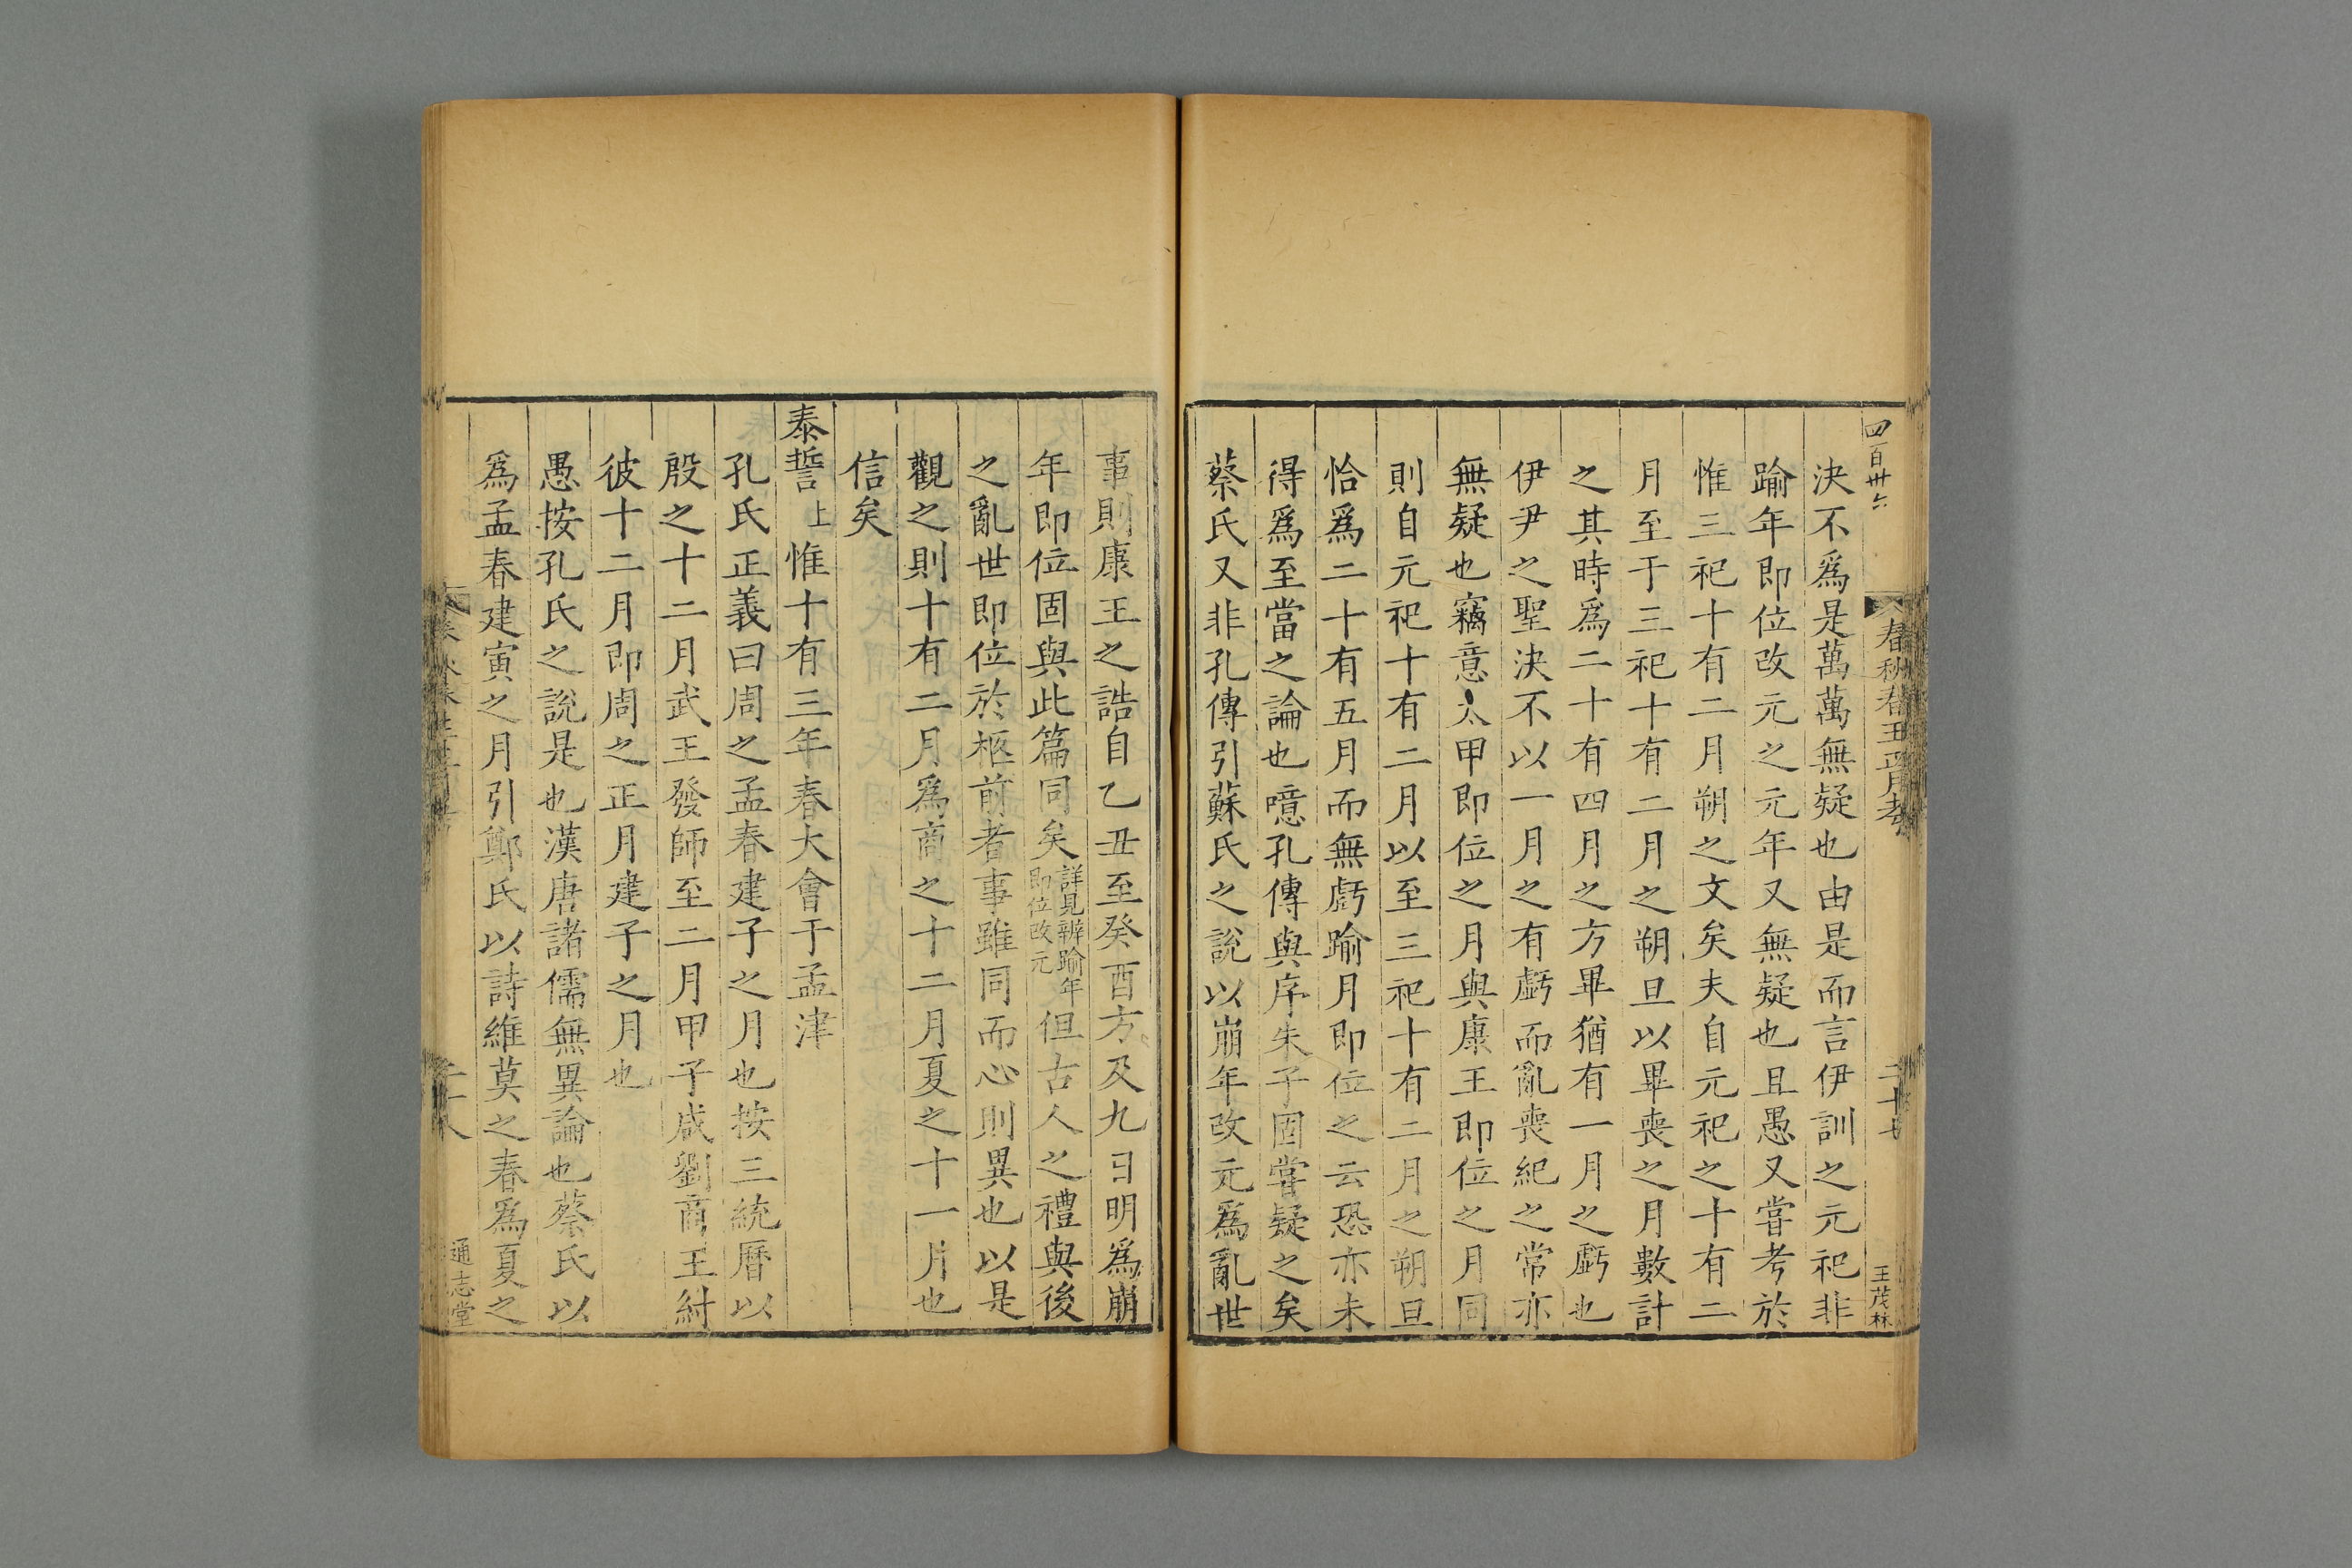 四百卅六
春秋春王正月考
二十七
王茂林
決不爲是萬萬無疑也由是而言伊訓之元祀非
踰年即位改元之元年又無疑也且愚又嘗考於
惟三祀十有二月朔之文矣夫自元祀之十有二
月至于三祀十有二月之朔旦以畢喪之月數計
之其時爲二十有四月之方畢猶有一月之虧也
伊尹之聖決不以一月之有虧而亂喪紀之常亦
無疑也竊意太甲即位之月與康王即位之月同
則自元祀十有二月以至三祀十有二月之朔旦
恰爲二十有五月而無虧踰月即位之云恐亦未
得爲至當之論也噫孔傳與序朱子固嘗疑之矣
蔡氏又非孔傳引蘇氏之說以崩年改元爲亂世
事則康王之誥自乙丑至癸酉方及九日明爲崩
年即位固與此篇同矣詳見辨踰年即位改元但古人之禮與後
之亂世即位於柩前者事雖同而心則異也以是
觀之則十有二月爲商之十二月夏之十一月也
信矣
泰誓上惟十有三年春大會于孟津
孔氏正義曰周之孟春建子之月也按三統曆以
殷之十二月武王發師至二月甲子咸劉商王紂
彼十二月即周之正月建子之月也
愚按孔氏之說是也漢唐諸儒無異論也蔡氏以
爲孟春建寅之月引鄭氏以詩維莫之春爲夏之
通志堂